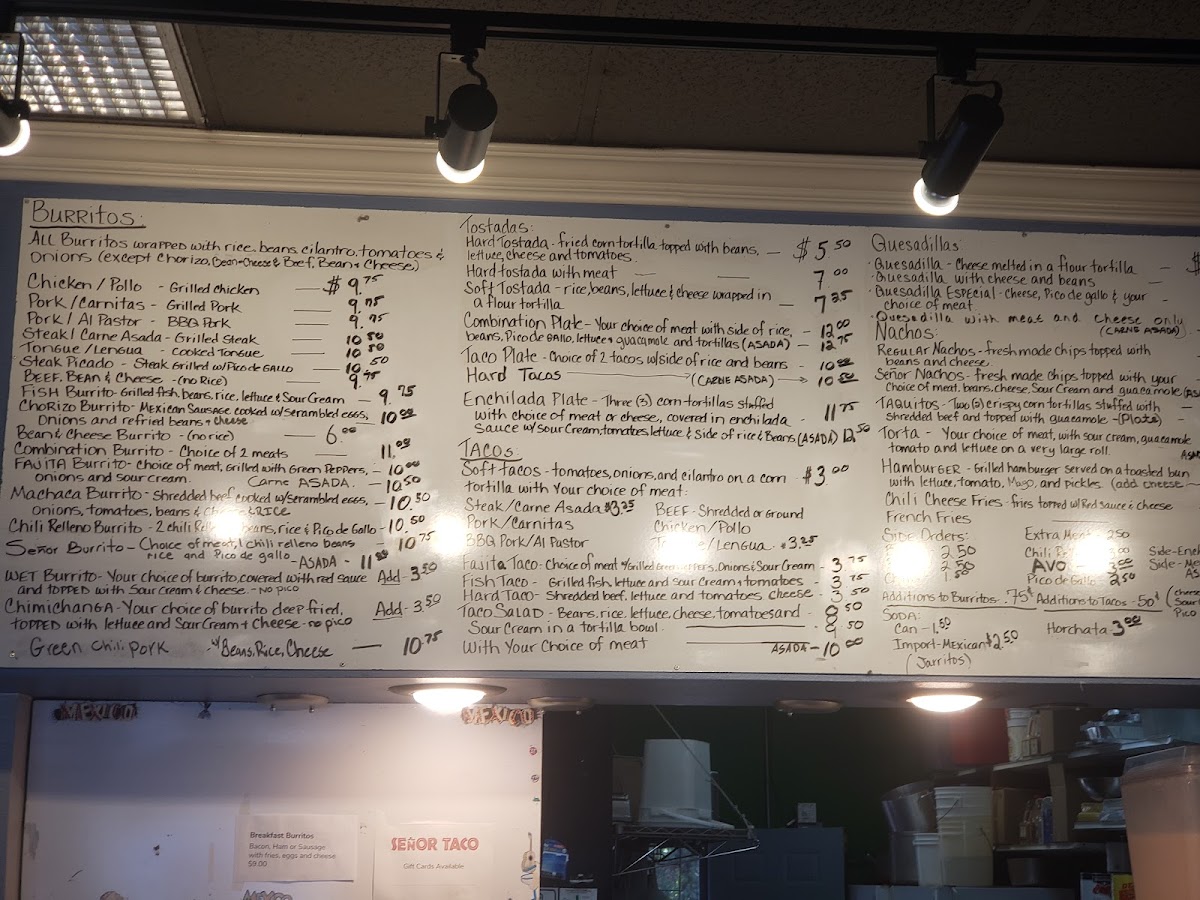 BURRITOS:
ALL Burritos wrapped with rice, beans, cilantro, tomatoes &
onions (except Chorizo, Bean+Cheese & Beef, Bean & Cheese)
Chicken / Pollo - Grilled chicken $ 9.75
Pork / Carnitas - Grilled Pork 9.75
Pork / Al Pastor - BBQ Pork 9.75
Steak / Carne Asada - Grilled Steak 10.50
Tongue / Lengua - Cooked Tongue 10.50
Steak Picado - Steak Grilled w/Pico de GALLO 10.50
BEEF, BEAN & Cheese - (no Rice) 9.75
FISH Burrito - Grilled fish, beans, rice, lettuce & Sour Cream - 9.75
Chorizo Burrito - Mexican Sausage cooked w/scrambled eggs, 10.00
Onions and refried beans + cheese
Bean & Cheese Burrito - (no rice) 6.00
Combination Burrito - Choice of 2 meats 11.00
FAJITA Burrito - Choice of meat, Grilled with Green Peppers, - 10.00
onions and sour cream. Carne ASADA. - 10.50
Machaca Burrito - Shredded beef cooked w/scrambled eggs, - 10.50
onions, tomatoes, beans & RICE
Chili Relleno Burrito - 2 chili beans, rice & Pico de Gallo - 10.50
Señor Burrito - Choice of meat, 1 chili relleno beans 10.75
rice and Pico de gallo - ASADA - 11.
WET Burrito - Your choice of burrito, covered with red sauce Add - 3.50
and topped with Sour Cream & cheese. - no pico
Chimichanga - Your choice of burrito deep fried, Add - 3.50
topped with lettuce and Sour Cream + Cheese - no pico
Green Chili pork w/ Beans, Rice, Cheese - 10.75
Tostadas:
Hard Tostada - fried corn tortilla topped with beans, - $ 5.50
lettuce, cheese and tomatoes.
Hard tostada with meat 7.00
Soft Tostada - rice, beans, lettuce & cheese wrapped in - 7.25
a flour tortilla
Combination Plate - Your choice of meat with side of rice, - 12.00
beans, Pico de GALLO, lettuce & guacamole and tortillas (ASADA) - 12.75
Taco Plate - Choice of 2 tacos w/side of rice and beans - 10.00
Hard Tacos (CARNE ASADA) 10.50
Enchilada Plate - Three (3) corn tortillas stuffed
with choice of meat or cheese, covered in enchilada - 11.75
Sauce w/ sour Cream, tomatoes, lettuce & side of rice & Beans (ASADA) 12.50
TACOS
Soft tacos - tomatoes, onions, and cilantro on a corn - $3.00
tortilla with Your choice of meat:
Steak/Carne Asada $3.25 BEEF - Shredded or Ground
Pork/Carnitas Chicken/Pollo
BBQ Pork/Al Pastor /Lengua - $3.25
Fajita Taco - Choice of meat w/Grilled Green Peppers, Onions & Sour Cream - 3.75
Fish Taco - Grilled fish, lettuce and sour Cream & tomatoes - 3.75
Hard Taco - Shredded beef, lettuce and tomatoes cheese - 3.50
Taco SALAD - Beans, rice, lettuce, cheese, tomatoes and 8.50
Sour Cream in a tortilla bowl. 9.50
With Your Choice of meat ASADA - 10.00
Quesadillas: $
Quesadilla - Cheese melted in a flour tortilla
Quesadilla with cheese and beans
Quesadilla ESPECIAL - cheese, Pico de gallo & your
choice of meat
Quesadilla with meat and cheese only
(CARNE ASADA)
Nachos:
REGULAR Nachos - fresh made chips topped with
beans and cheese.
Señor Nachos - fresh made chips topped with your
Choice of meat, beans, cheese, Sour Cream and guacamole
TAQuitos - Two (2) crispy corn tortillas stuffed with
shredded beef and topped with guacamole - (Plate)
Torta - Your choice of meat, with sour cream, guacamole
tomato and lettuce on a very large roll.
HAMBURGER - Grilled hamburger served on a toasted bun
with lettuce, tomato, Mayo, and pickles. (add cheese
Chili Cheese Fries - fries topped w/Red sauce & cheese
French Fries
Side Orders: Extra Meat 2.50
2.50 Chili 3.00 Side-
2.50 AVO 3.00 Side-
1.50 Pico de Gallo 2.50
Additions to Burritos .75¢ Additions to Tacos .50¢
SODA:
Can - 1.50 Horchata - 3.00
Import - Mexican $2.50
(Jarritos)
MEXICO
MEXICO
Breakfast Burritos
Bacon, Ham or Sausage
with fries, eggs and cheese
$9.00
SEÑOR TACO
Gift Cards Available
MEXICO